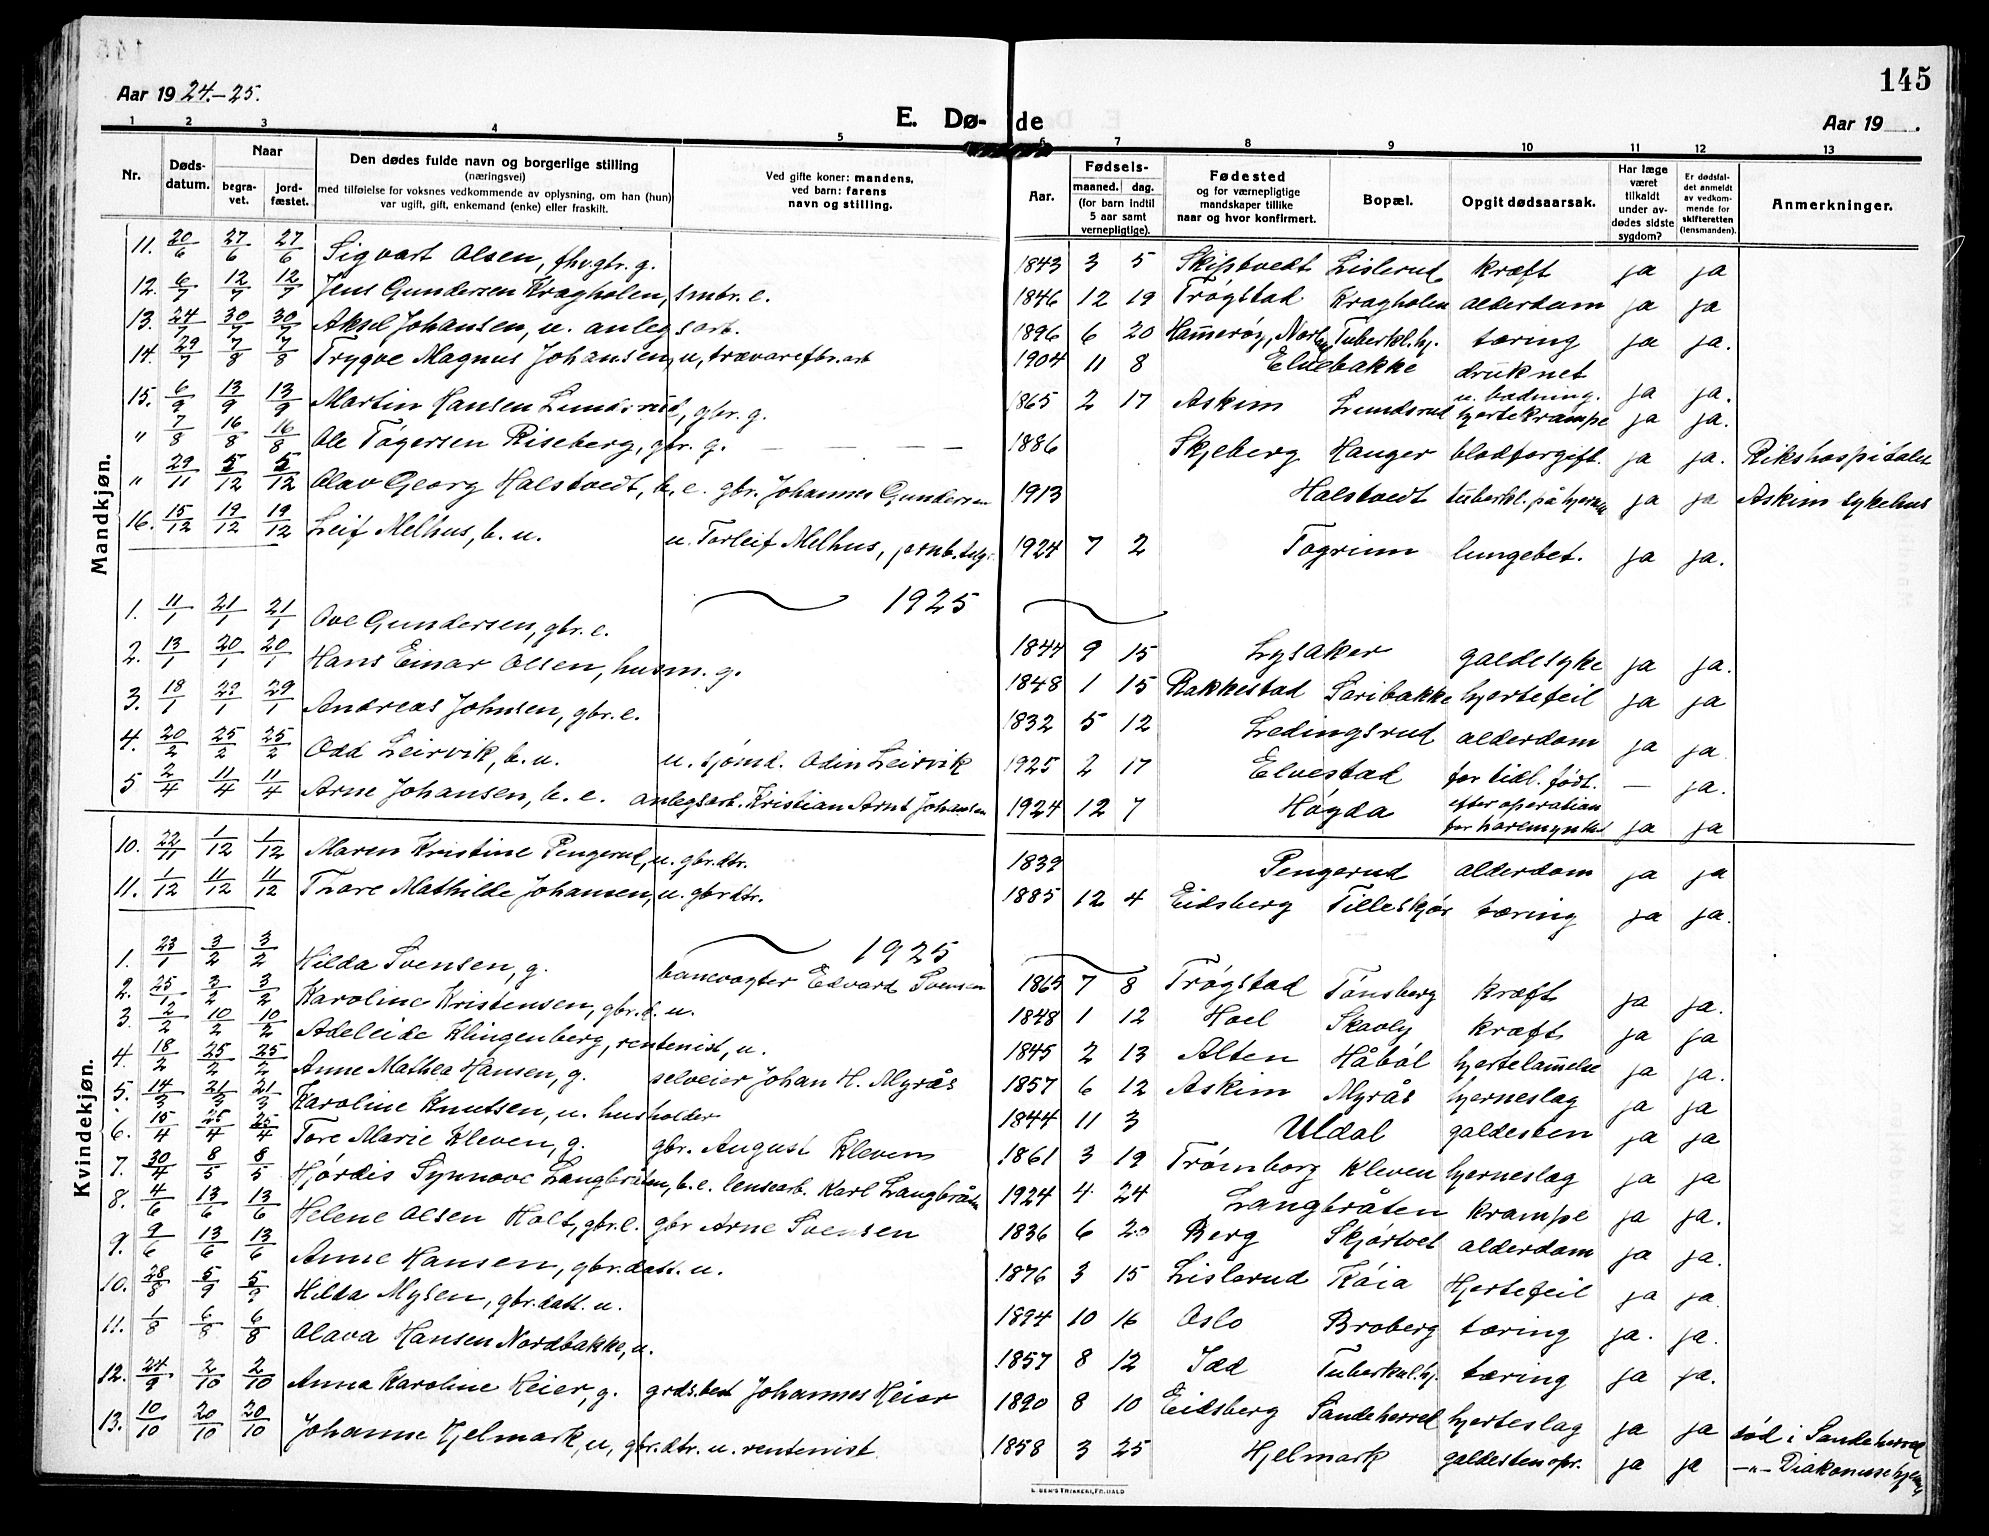 145
Aar 1924.-25.
E. Dø-de
Aar 19
1 2 3 4 5 6 7 8 9 10 11 12 13
Nr.
Døds-datum.
Naar
begra-vet.
jord-fæstet.
Den dødes fulde navn og borgerlige stilling
(næringsvei)
med tilføielse for voksnes vedkommende av oplysning, om han (hun)
var ugift, gift, enkemand (enke) eller fraskilt.
Ved gifte koner: mandens,
ved barn: farens
navn og stilling.
Aar.
Fødsels-
maaned. dag.
(for barn indtil
5 aar samt
vernepligtige).
Fødested
og for værnepligtige
mandskaper tillike
naar og hvor konfirmert.
Bopæl.
Opgit dødsaarsak.
Har læge
været
tilkaldt
under av-
dødes sidste
sygdom?
Er dødsfal-
det anmeldt
av vedkom-
mende for
skifteretten
(lensmanden).
Anmerkninger.
Mandkjøn.
11. 20/6 27/6 27/6 Sigvart Olsen, fhv. gbr. g. 1843 3 5 Skiptvedt Lislerud kræft ja ja
12. 6/7 12/7 12/7 Jens Gundersen Kragholen, smbr. e. 1846 12 19 Trøgstad Kragholen alderdom ja ja
13. 24/7 30/7 30/7 Aksel Johansen, u. anlegsarb. 1896 6 20 Hamerøy, Norl. Tuberkl.hj. tæring ja ja.
14. 29/7 7/8 7/8 Trygve Magnus Johansen, u, trævarefbr.arb 1904 11 8 Elvebakke druknet u. badning. ja ja.
15. 6/9 13/9 13/9 Martin Hansen Lundsrud, gbr. g. 1865 2 17 Askim Lundsrud hjertekrampe ja ja.
" 7/8 16/8 16/8 Ole Tøgersen Riseberg, gbr. g. — — — 1886 Skjeberg Hanger blodforgift. ja ja. Rikshospitalet
" 29/11 5/12 5/12 Olav Georg Halstvedt, b. e. gbr. Johannes Gundersen 1913 Halstvedt tuberkl. på hjernen ja ja Askim sykehus
16. 15/12 19/12 19/12 Leif Melhus, b. u. u. Torleif Melhus, jernb.telg. 1924 7 2 Togrinn lungebet. ja ja.
1925
1. 11/1 21/1 21/1 Ove Gundersen, gbr. e. 1844 9 15 Lysaker galdesyke ja ja.
2. 13/1 20/1 20/1 Hans Einar Olsen, husm. g. 1848 1 15 Rakkestad Saribakke hjertefeil ja ja
3. 18/1 29/1 29/1 Andreas Johnsen, gbr. e. 1832 5 12 Ledingsrud alderdom ja ja
4. 20/2 25/2 25/2 Odd Leirvik, b. u. u. sjømd. Odin Leirvik 1925 2 17 Elvestad for tidl. født. — ja.
5 2/4 11/4 11/4 Arne Johansen, b. e. anlegsarb. Kristian Arnt Johansen 1924 12 7 Høgda efter operation for haremynthet ja ja
Kvindekjøn.
10. 22/11 1/12 1/12 Maren Kristine Pengerud, u. gbr.dtr. 1839 Pengerud alderdom ja ja
11. 1/12 11/12 11/12 Thore Mathilde Johansen, u. gbr.dtr. 1885 12 4 Eidsberg Tilleskjør tæring ja ja.
1925
1. 23/1 3/2 3/2 Hilda Svensen, g. banevogter Edvard Svensen 1865 7 8 Trøgstad Tønsberg kræft ja ja.
2. 25/1 3/2 3/2 Karoline Kristensen, gbr.d. u. 1848 1 12 Hoel Skavly kræft ja ja
3. 2/2 10/2 10/2 Adeleide Klingenberg, rentenist, u. 1845 2 13 Alten Håbøl hjertelamelse ja ja.
4. 18/2 25/2 25/2 Anne Mathea Hansen, g. selveier Johan H. Myrås 1857 6 12 Askim Myrås hjerneslag ja ja
5. 14/3 21/3 21/3 Karoline Knutsen, u. husholder 1844 11 3 Uldal galdesten ja ja
6. 15/4 25/4 25/4 Tore Marie Kleven, g. gbr. August Klevens 1861 3 19 Trømborg Kleven hjerneslag ja ja
7. 30/4 8/5 8/5 Hjørdis Synnøve Langbråten, b. e. lensearb. Karl Langbråten 1924 4 24 Langbråten krampe ja ja.
8. 4/6 13/6 13/6 Helene Olsen Holt, gbr.e. gbr Arne Svensen 1836 6 20 Berg Skjørtvet alderdom ja ja.
9. 9/6 13/6 13/6 Anne Hansen, gbr.datt. u. 1876 3 15 Lislerud Køia Hjertefeil ja ja.
10. 28/8 5/9 5/9 Hilda Mysen, gbr.datt. u. 1894 10 16 Oslo Broberg tæring ja. ja.
11. 1/8 6/8 6/8 Olava Hansen Nordbakke, u. 1857 8 12 Idd Tuberkul.hj. tæring ja ja.
12. 24/9 2/10 2/10 Anna Karoline Heier, g. grdsbest Johannes Heier 1890 8 10 Eidsberg Sandeherred hjerteslag ja ja død i Sandeherred
13. 10/10 20/10 20/10 Johanne Hjelmark, u, gbr.dtr. u. rentenist 1858 3 25 Hjelmark galdesten opr. ja ja —"— Diakonissehjem